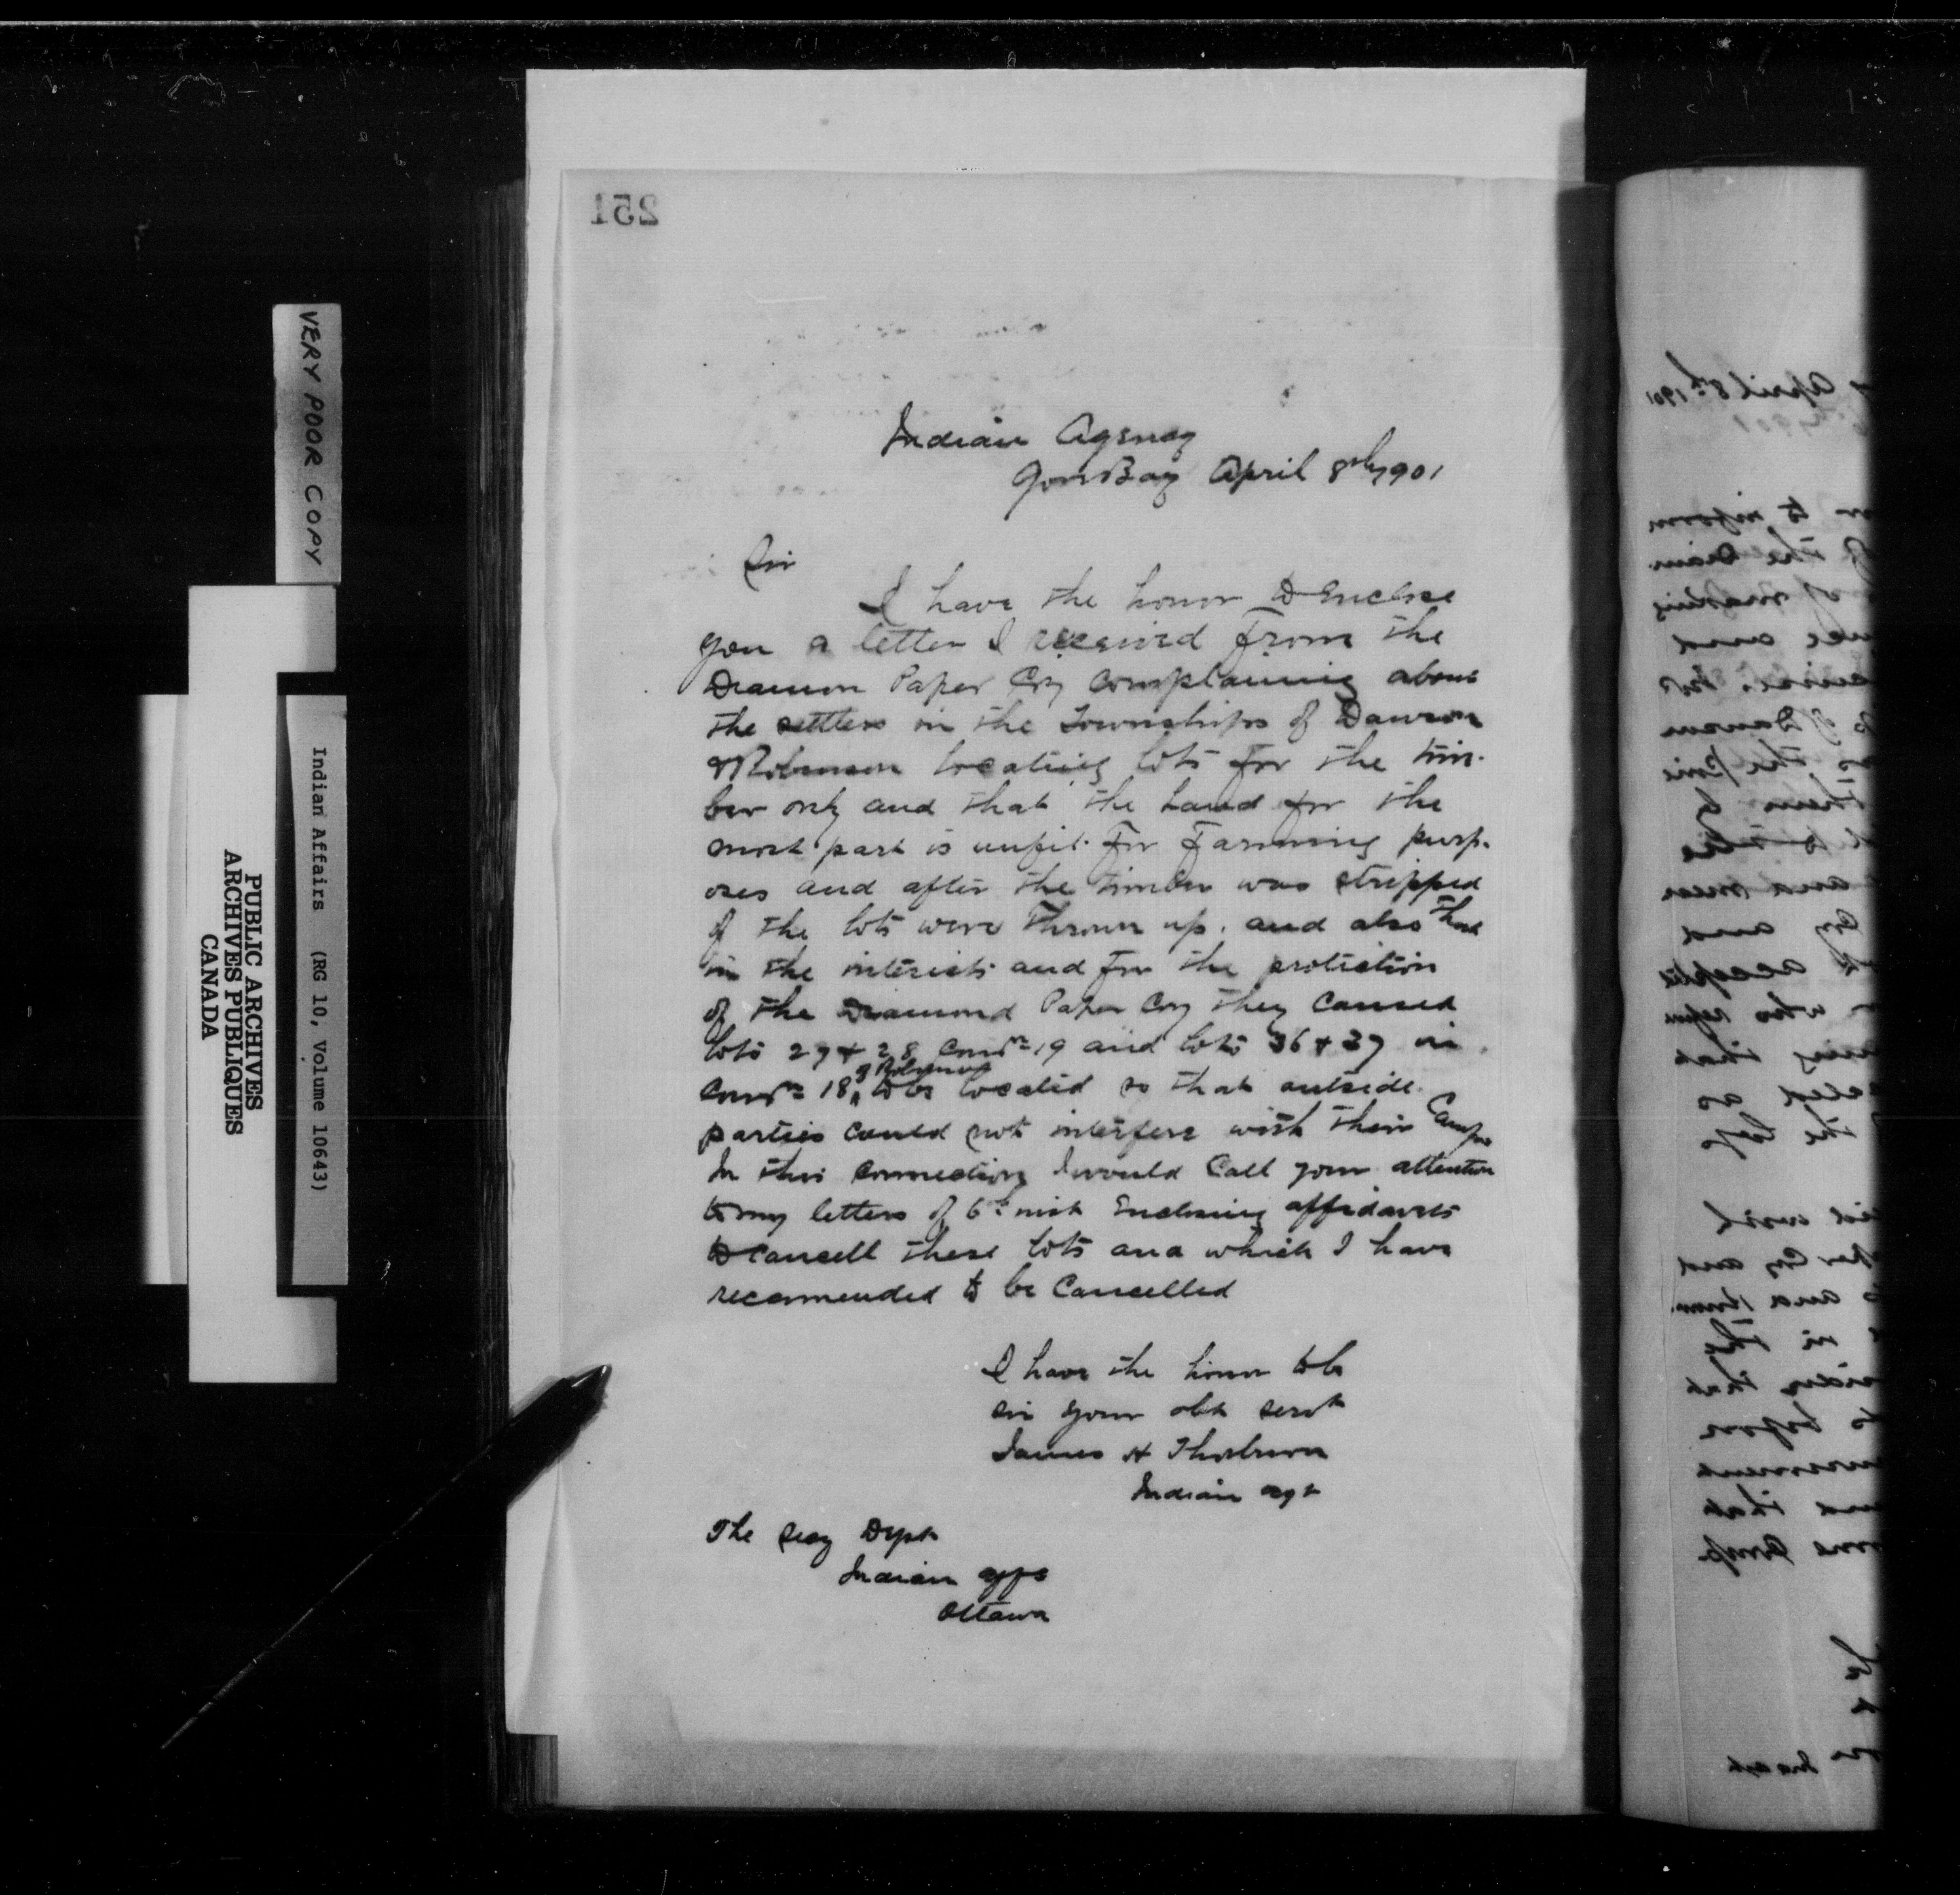 251
Indian Agency
Gore Bay April 8th 1901
Sir
I have the honor to Enclose
you a letter I received from the
Diamon Paper Coy Complaining about
the settlers in the Townships of Dawson
& Robinson locating lots for the tim-
ber only and that the Land for the
most part is unfit for Farming purp-
oses and after the timber was stripped
of the lots were thrown up. and also that
in the interests and for the protection
of the Diamond Paper Coy they Caused
lots 27 & 28 Conn 19 and lots 36 & 37 in
Conn 18 of Robinson to be located so that outside
parties could not interfere with their Camps
In this Connection I would Call your attention
to my letters of 6th inst Enclosing affidavits
to Cancell these lots and which I have
recommended to be Cancelled
I have the honor to be
sir your obt servt
James H Thorburn
Indian agt
The Secy Dept
Indian affs
Ottawa
April 8th 1901
to inform
of making
and
of Dawson
the pine
them
and
accepted
that
as
the lots
Coy and
in the
that
to before
that
Camp
Ind agt
VERY POOR COPY
Indian Affairs (RG 10, Volume 10643)
PUBLIC ARCHIVES
ARCHIVES PUBLIQUES
CANADA